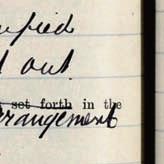 out.
set forth in the
arrangement